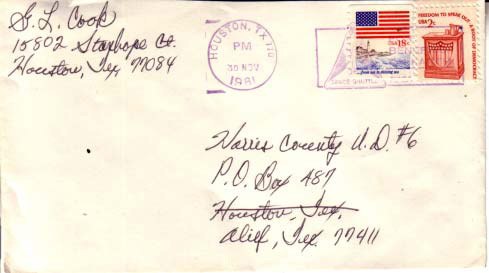 S. L. Cook
15802 Stanhope Ct.
Houston, Tex, 77084
HOUSTON, TX 770
PM
30 NOV
1981
SPACE SHUTTLE
USA 18c
from sea to shining sea
FREEDOM TO SPEAK OUT A ROOT OF DEMOCRACY
USA 2c
Harris County U.D. #6
P.O. Box 487
Houston, Tex.
Alief, Tex. 77411